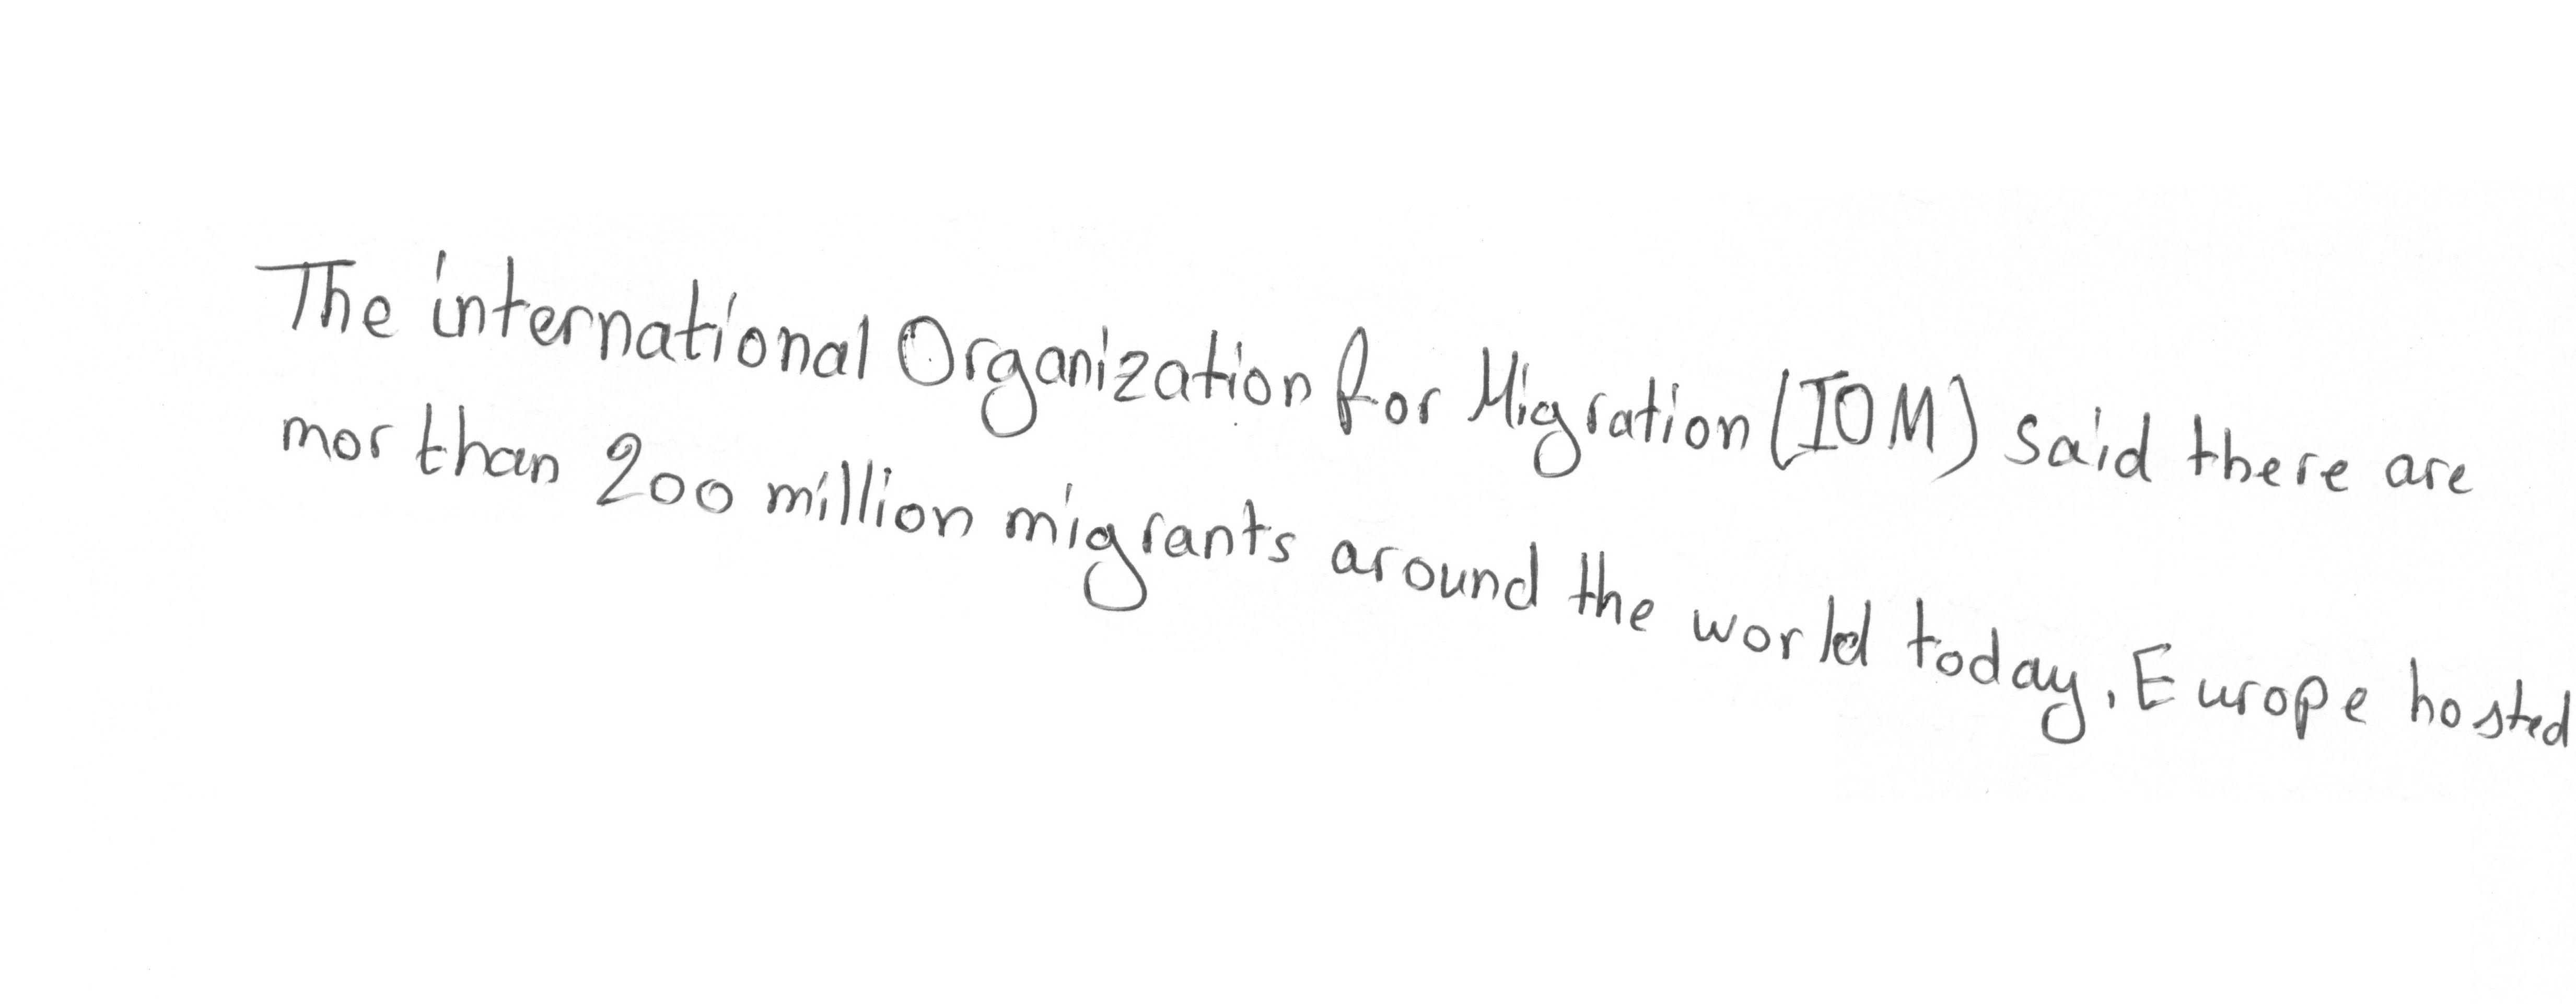 The international Organization for Migration (IOM) said there are
mor than 200 million migrants around the world today. Europe hosted